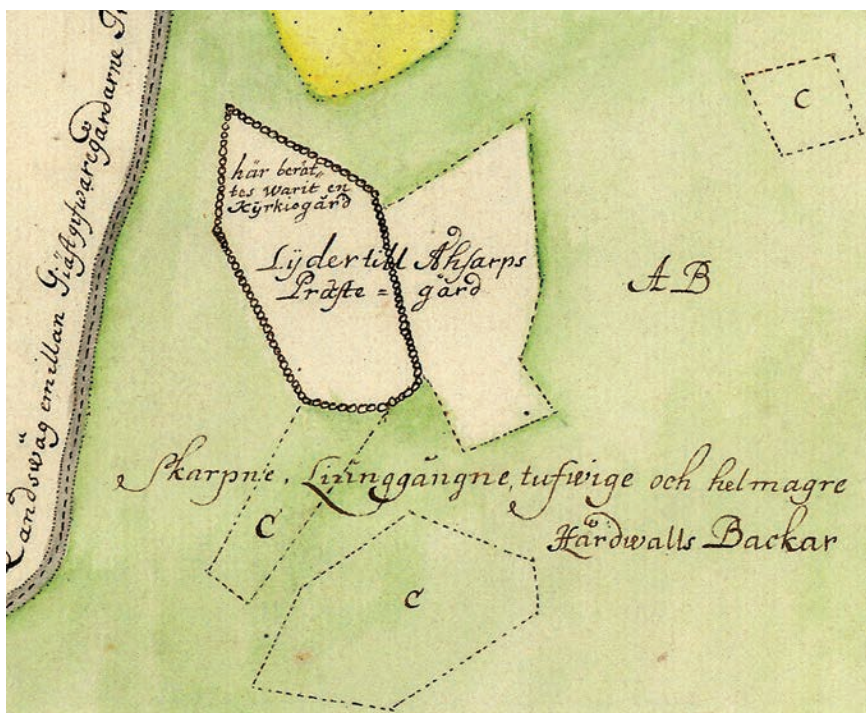 Landswäg emillan Giästgifwaregårdarne
här berät„
tes warit en
Kÿrkiogård
Lÿder till Åhsarps
Präste = gård
A B
C
Skarpne, Liünggångne, tufwige och helmagre
Hårdwalls Backar
C
C